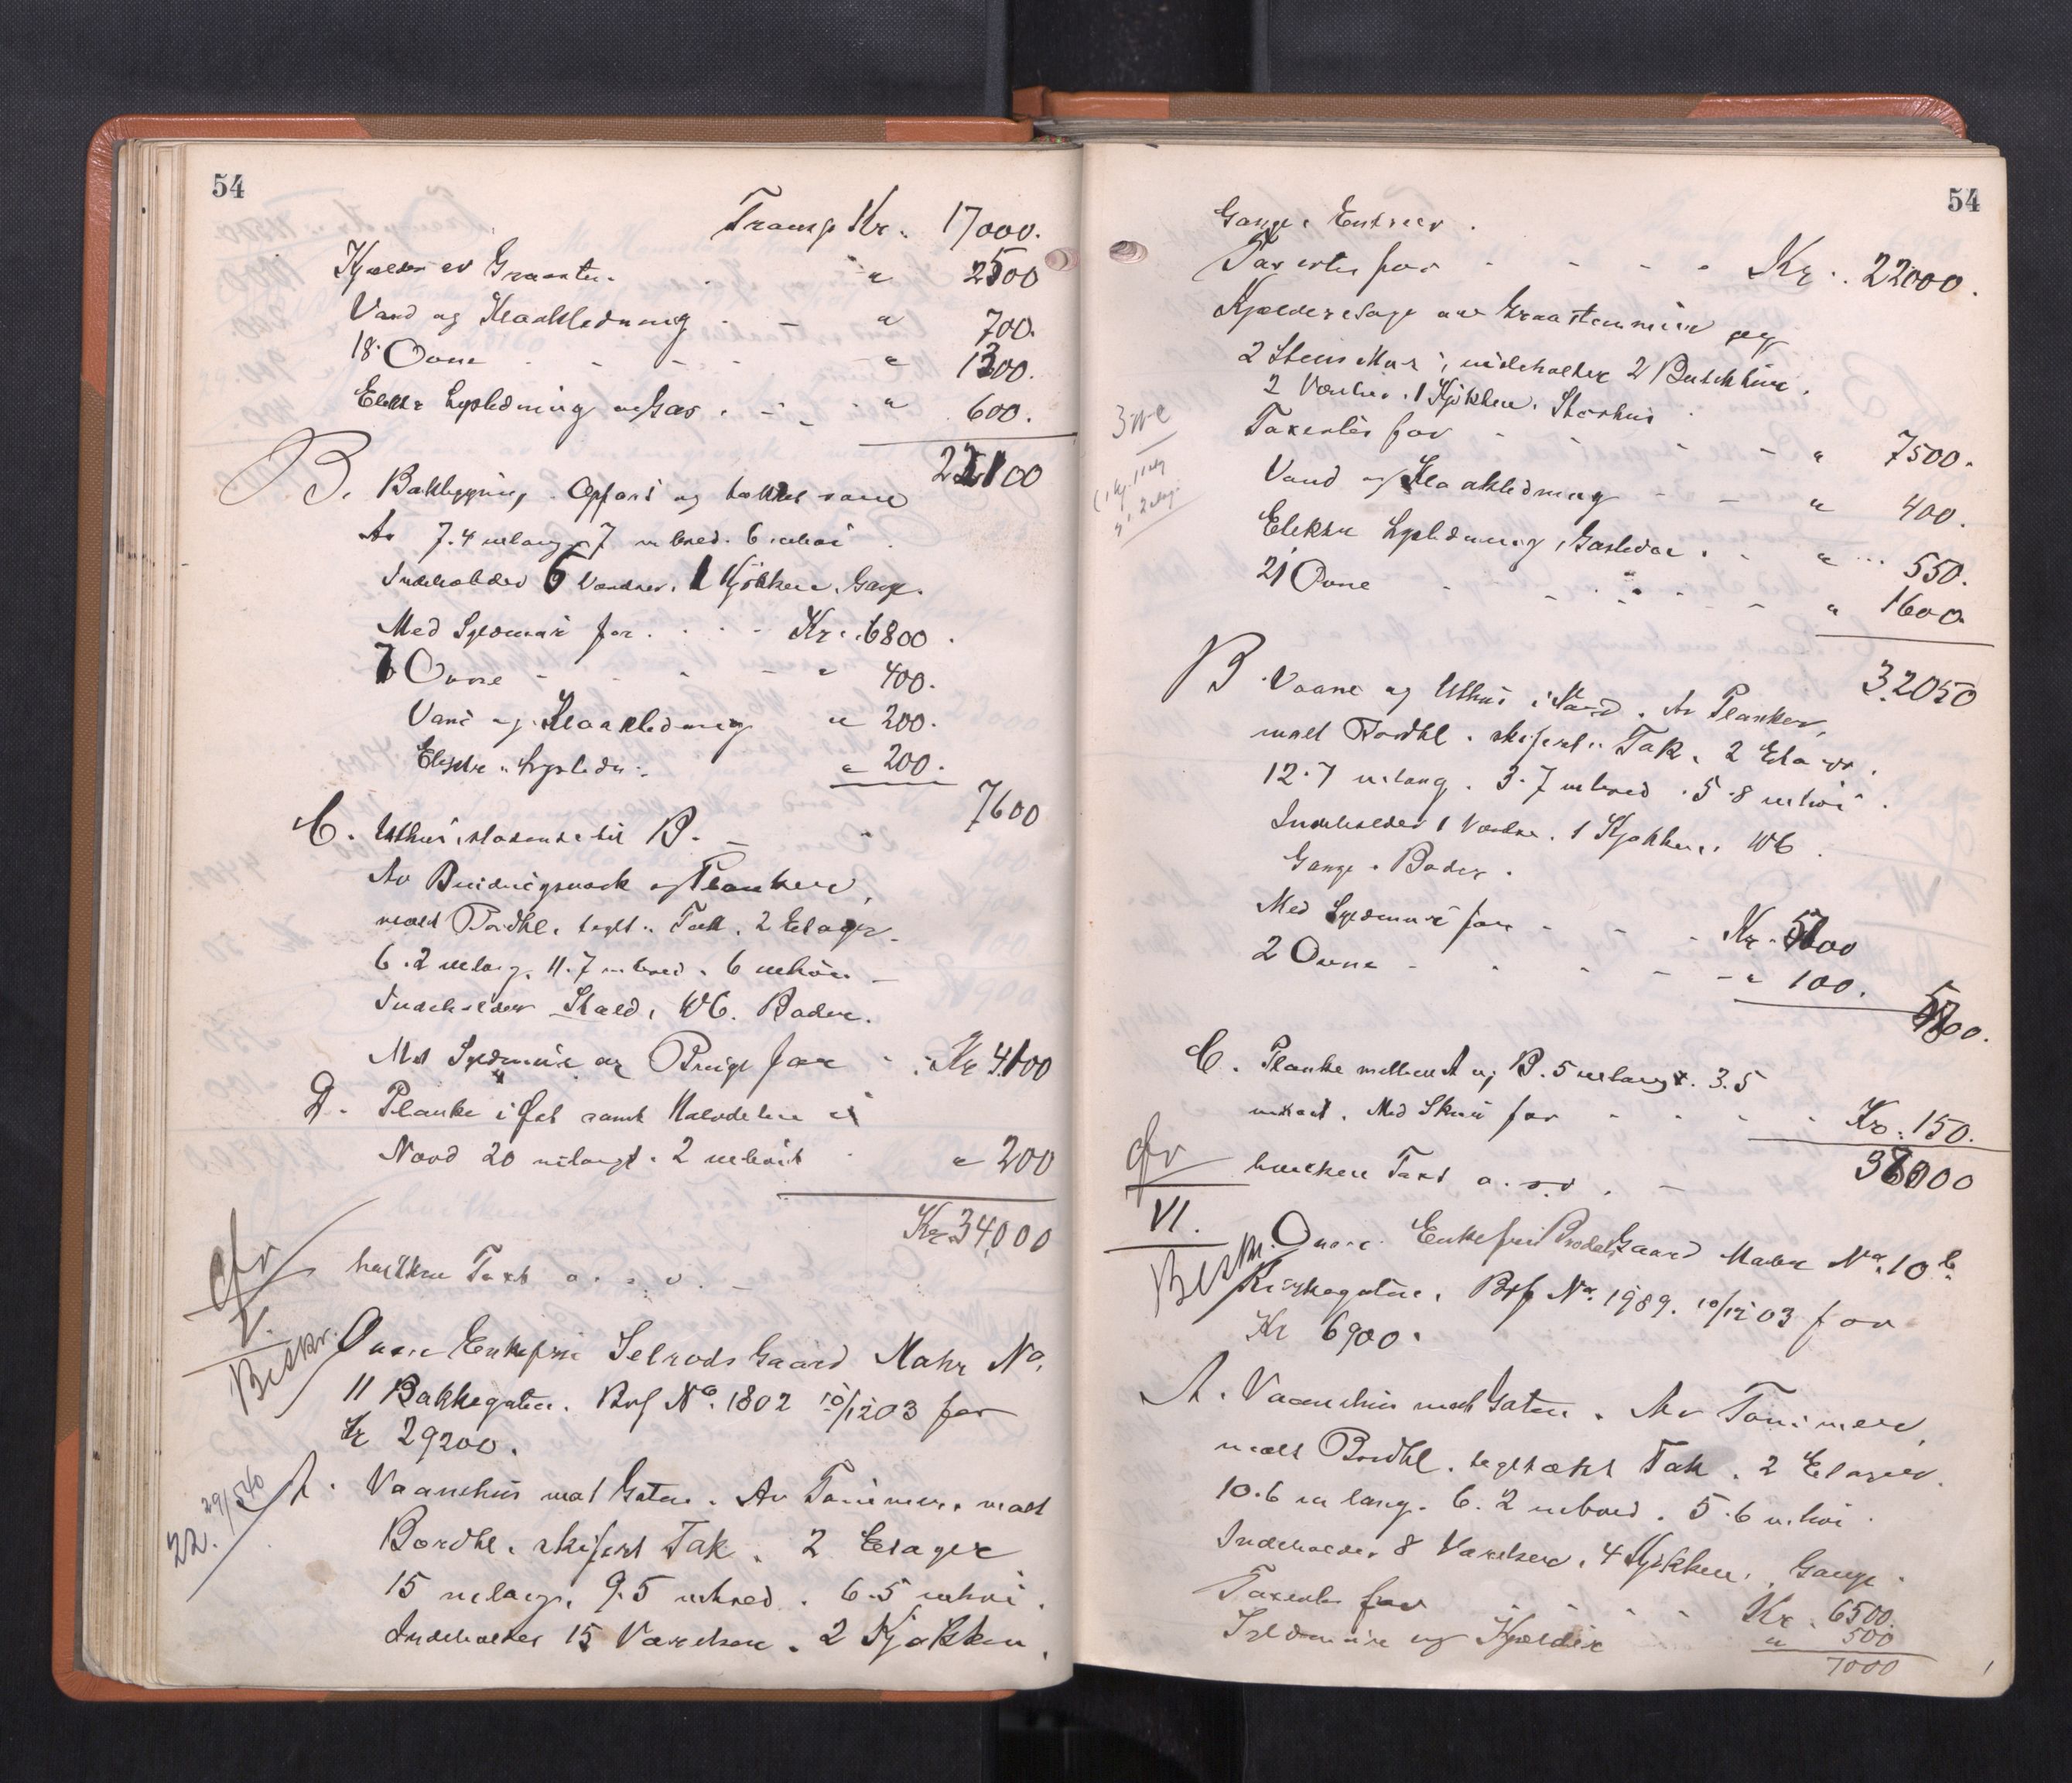 54
Transp Kr. 17000.
Kjælder av Graasten. " 2500
Vand og Kloakledning - " 700.
18 Ovne - - - " 1300.
Elektr Lysledning og Gas. - " 600.
22100
B. Bakbygning. Opført og tækket som
A. 7.4 m lang. 7 m bred. 6 m høi
Indeholder 6 Værelser. 1 Kjøkken. Gange.
Med Syldmur for. - - Kr. 6800.
7 Ovne - - - " 400.
Vand og Kloakledning " 200.
Elektr. Lysledn. " 200.
7600
C. Uthus, stødende til B. -
Av Bindingsverk og Planker,
malt Bordkl. tegl. Tak. 2 Etager.
6.2 m lang. 11.7 m bred. 6 m høi -
Indeholder Stald, WC. Boder.
Med Syldmur og for - Kr 4100
D. Planke i Øst samt Halvdelen i
Nord 20 m langt. 2 m høit " 200
Kr 34,000
hvilken Taxt o. s. v. -
cfr
V.
Beskr.
Ovne Enkefru Selrods Gaard Matr No.
11 Bakkegaten. Brf No. 1802 10/12 03 for
Kr 29200.
22. 29/5 40
A. Vaaningshus mot Gaten. Av Tømmer, malt
Bordkl. skifert Tak. 2 Etager
15 m lang. 9.5 m bred. 6.5 m høi.
Indeholder 15 Værelser. 2 Kjøkken.
54
Gange. Entreer.
Taxertes for - - - - Kr. 22000.
Kjælderetage av Graastensmur og
2 Stens Mur, indeholder 2 Butikker.
2 Værelser. 1 Kjøkken.
Taxertes for - - - - " 7500.
Vand og Kloakledning - - " 400.
Elektr Lysledning, Gasledn. - " 550.
21 Ovne - - - - - " 1600.
32050
B. Vaane og Uthus i Nord. Av Planker,
malt Bordkl. skifert Tak. 2 Etager.
12.7 m lang. 3.7 m bred. 5.8 m høi.
Indeholder 1 Værelse. 1 Kjøkken. WC.
Gange. Boder.
Med Syldmur for - - - Kr. 5700
2 Ovne - - - - - " 100.
5800.
C. Planke mellem A og B. 5 m langt. 3.5
m høit. Med Skur for - - - Kr. 150.
38000
cfr
hvilken Taxt o. s. v. -
VI.
Beskr.
Ovne. Enkefru Gaard Matr No. 10 b
Kirkegaten. Brf No. 1989. 10/12 03 for
Kr 6900.
A. Vaaningshus mot Gaten. Av Tømmer,
malt Bordkl. tegltækt Tak. 2 Etager.
10.6 m lang. 6.2 m bred. 5.6 m høi.
Indeholder 8 Værelser. 4 Kjøkken. Gange.
Taxertes for - - - Kr. 6500.
Syldmur og Kjælder " 500
7000